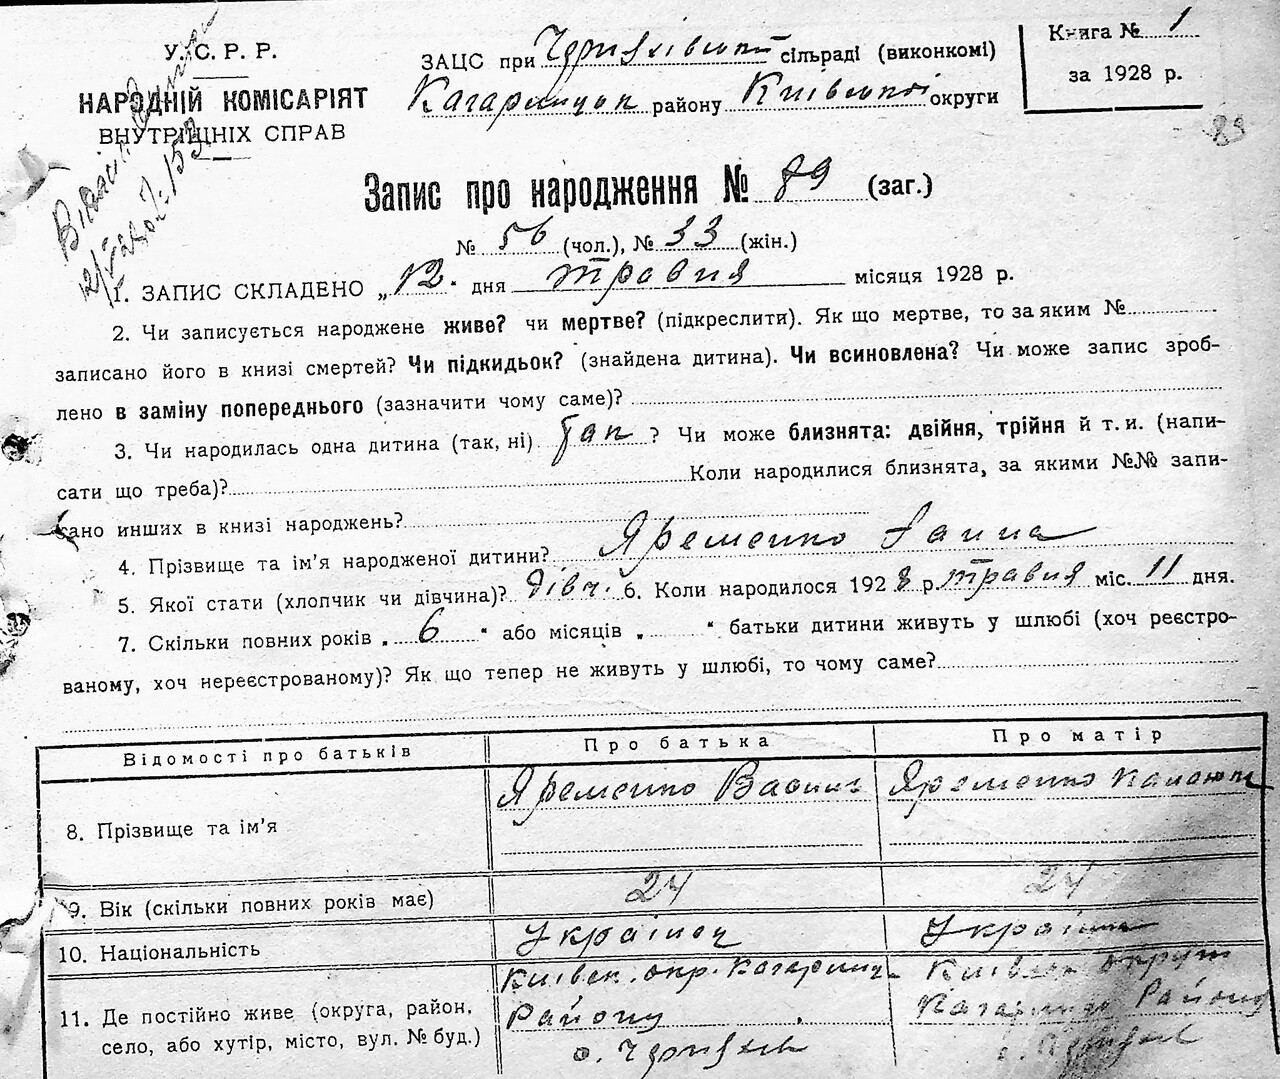 У. С. Р. Р.
НАРОДНІЙ КОМІСАРІЯТ
ВНУТРІШНІХ СПРАВ
ЗАЦС при Черняхівській сільраді (виконкомі)
Кагарлицьк району Київської округи
Книга № 1
за 1928 р.
89
Запис про народження № 89 (заг.)
№ 56 (чол.), № 33 (жін.)
1. ЗАПИС СКЛАДЕНО „12" дня травня місяця 1928 р.
2. Чи записується народжене живе? чи мертве? (підкреслити). Як що мертве, то за яким №
записано його в книзі смертей? Чи підкидьок? (знайдена дитина). Чи всиновлена? Чи може запис зроб-
лено в заміну попереднього (зазначити чому саме)?
3. Чи народилась одна дитина (так, ні) так ? Чи може близнята: двійня, трійня й т. и. (напи-
сати що треба)? Коли народилися близнята, за якими №№ запи-
сано инших в книзі народжень?
4. Прізвище та ім'я народженої дитини? Яременко Ганна
5. Якої стати (хлопчик чи дівчина)? дівч. 6. Коли народилося 1928 р. травня міс. 11 дня.
7. Скільки повних років „ 6 " або місяців „ " батьки дитини живуть у шлюбі (хоч реєстро-
ваному, хоч нереєстрованому)? Як що тепер не живуть у шлюбі, то чому саме?
Відомості про батьків Про батька Про матір
8. Прізвище та ім'я Яременко Василь Яременко
9. Вік (скільки повних років має) 24 24
10. Національність Українец Українка
11. Де постійно живе (округа, район,
село, або хутір, місто, вул. № буд.)
Київск. окр. Кагарлицк
Району
с. Черняхів
Київск округи
Кагарлицк Району
с. Черняхів